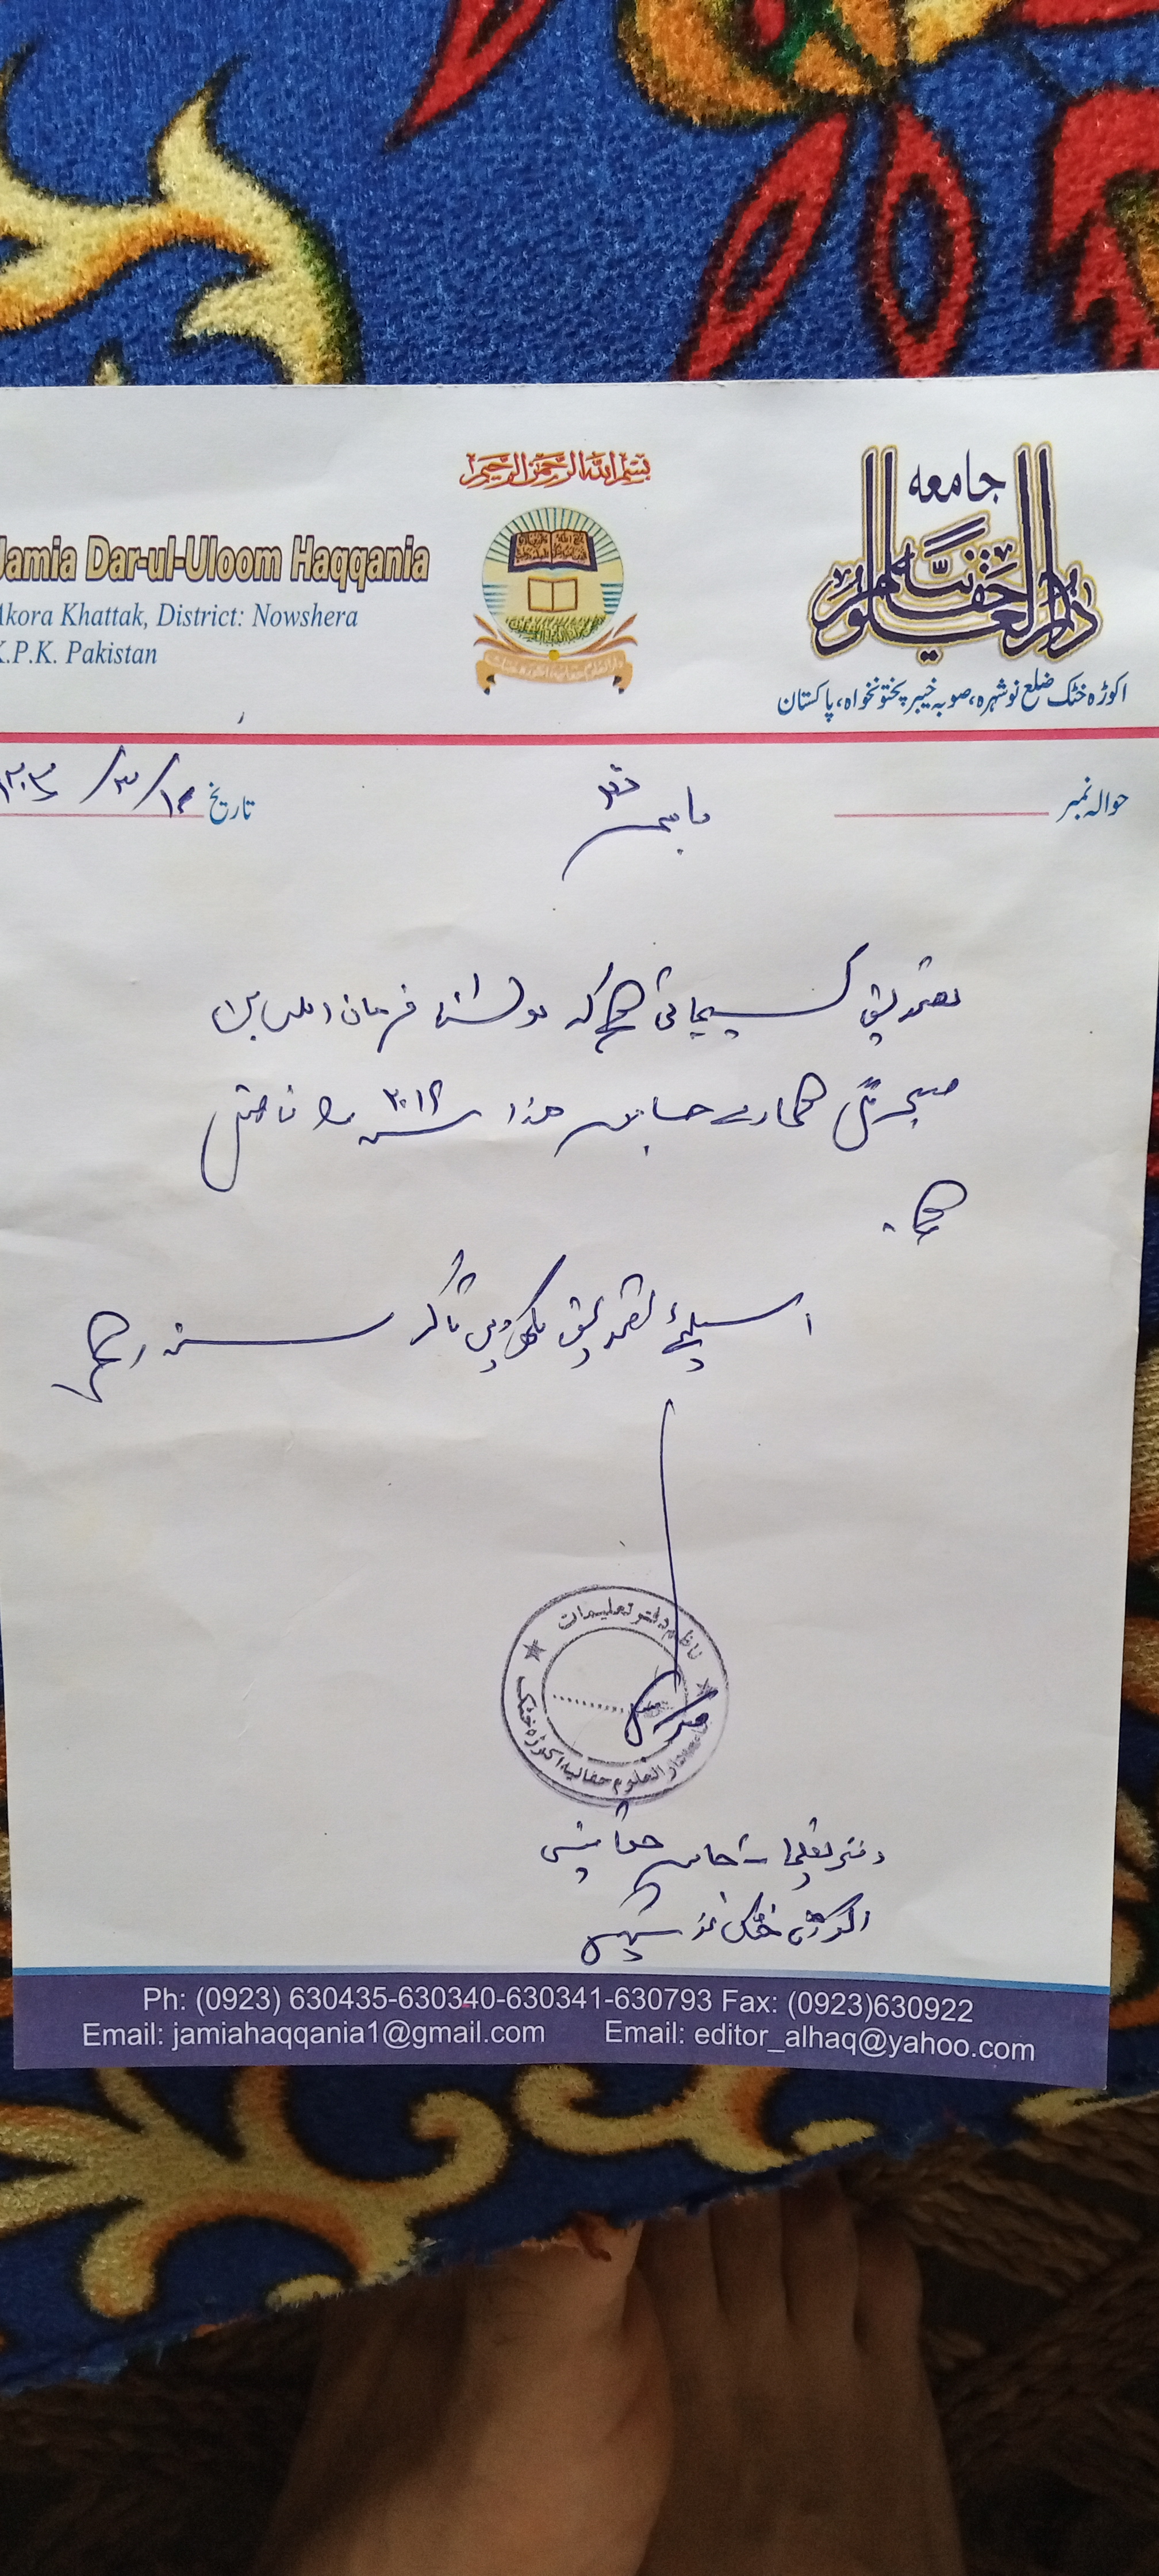 بسم اللہ الرحمن الرحیم
Jamia Dar-ul-Uloom Haqqania
Akora Khattak, District: Nowshera
K.P.K. Pakistan
جامعہ
دارالعلوم حقانیہ
اکوڑہ خٹک ضلع نوشہرہ، صوبہ خیبر پختونخواہ، پاکستان
حوالہ نمبر
تاریخ
تصدیق کی جاتی ہے کہ مولانا فرمان اللہ
ہمارے جامعہ ھذا سنہ ۲۰۱۶ کا فاضل
ہے۔
اسلئے تصدیق لکھ دی تاکہ سند رہے
ناظم دفتر تعلیمات
جامعہ دارالعلوم حقانیہ اکوڑہ خٹک
دفتر تعلیمات جامعہ حقانیہ
اکوڑہ خٹک نوشہرہ
Ph: (0923) 630435-630340-630341-630793 Fax: (0923)630922
Email: jamiahaqqania1@gmail.com Email: editor_alhaq@yahoo.com